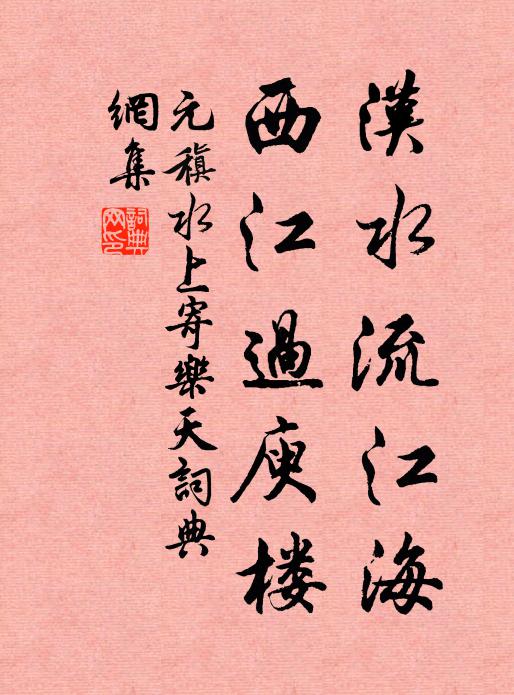 漢水流江海
西江過庾楼
元稹水上寄樂天詞典
網集
詞典網印